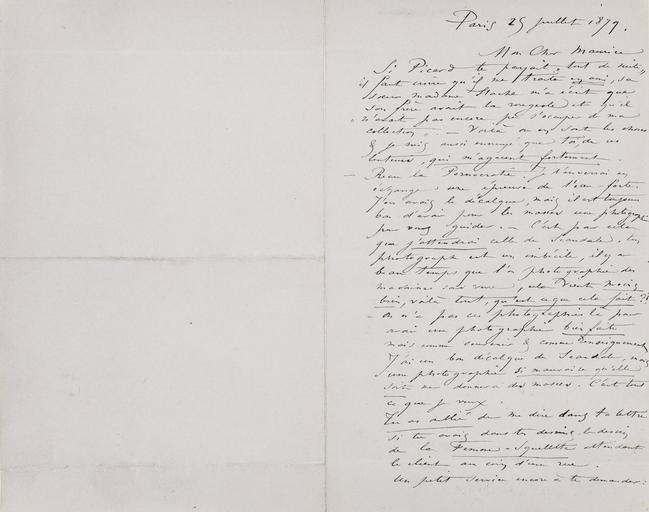 Paris 25 juillet 1879.
Mon Cher Maurice
Si Picard te parfait tout de suite,
il faut croire qu'il me traite en ami, sa
sœur madame Hache m'a écrit que
son frère avait la rougeole et qu'il
n'avait pas encore pu s'occuper de ma
collection. — Voilà où en sont les choses
& je suis aussi ennuyé que toi, de ces
lenteurs, qui m'agacent fortement.
— Reçu la Pornocratie. Je t'enverrai en
échange une épreuve de l'eau-forte.
J'en avais le décalque, mais il est toujours
bon d'avoir pour les masses une photographie
pour vous guider. — C'est par cela
que j'attendrai celle de Scandale, ton
photographe est un imbécile, il y a
beau temps que l'on photographie des
machines sous verre, cela vient moins
bien, voilà tout, qu'est-ce que cela fait ?!
— On n'a pas ces photographies là pour
avoir une photographie bien faite
mais comme souvenir & comme renseignement
J'ai un bon décalque de Scandale, mais
une photographie si mauvaise qu'elle
soit me donnera des masses. C'est tout
ce que je veux.
Tu as oublié de me dire dans ta lettre
si tu avais dans tes dessins, le dessin
de la Femme-Squelette attendant
le client au coin d'une rue.
Un petit service encore à te demander :